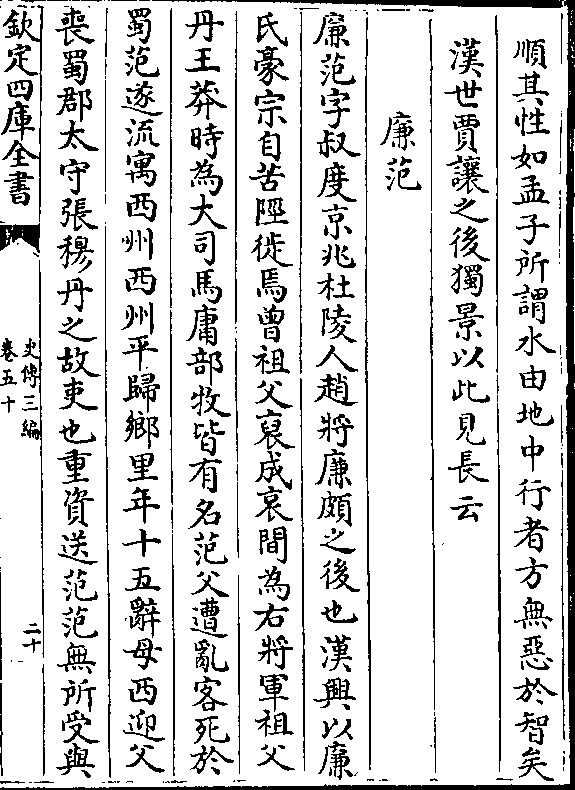 順其性如孟子所謂水由地中行者方無惡於智矣
漢世賈讓之後獨景以此見長云
廉范
廉范字叔度京兆杜陵人趙將廉頗之後也漢興以廉
氏豪宗自苦陘徙焉曾祖父裒成哀間為右將軍祖父
丹王莽時為大司馬庸部牧皆有名范父遭亂客死於
蜀范遂流寓西州西州平歸鄉里年十五辭母西迎父
喪蜀郡太守張穆丹之故吏也重資送范范無所受與
欽定四庫全書
史傳三編
卷五十
二十